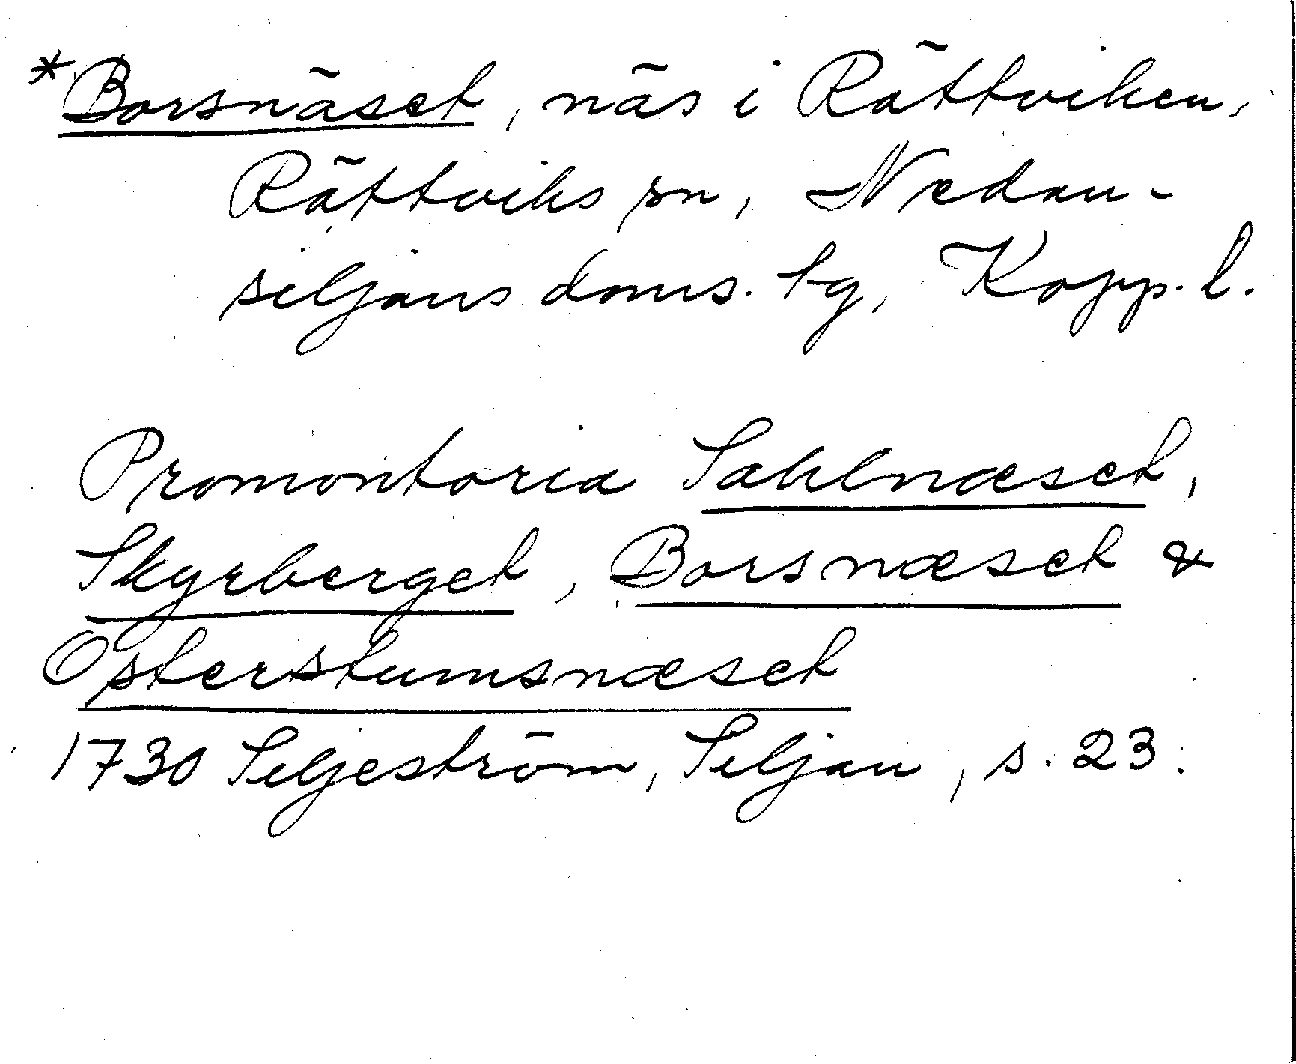 *Borsnäset, näs i Rättviken,
Rättviks sn, Nedan-
siljans doms. tg, Kopp. l.
Promontoria Sahlnæset,
Skyrberget, Borsnæset &
Osterstumsnæset
1730 Siljeström, Siljan, s. 23.